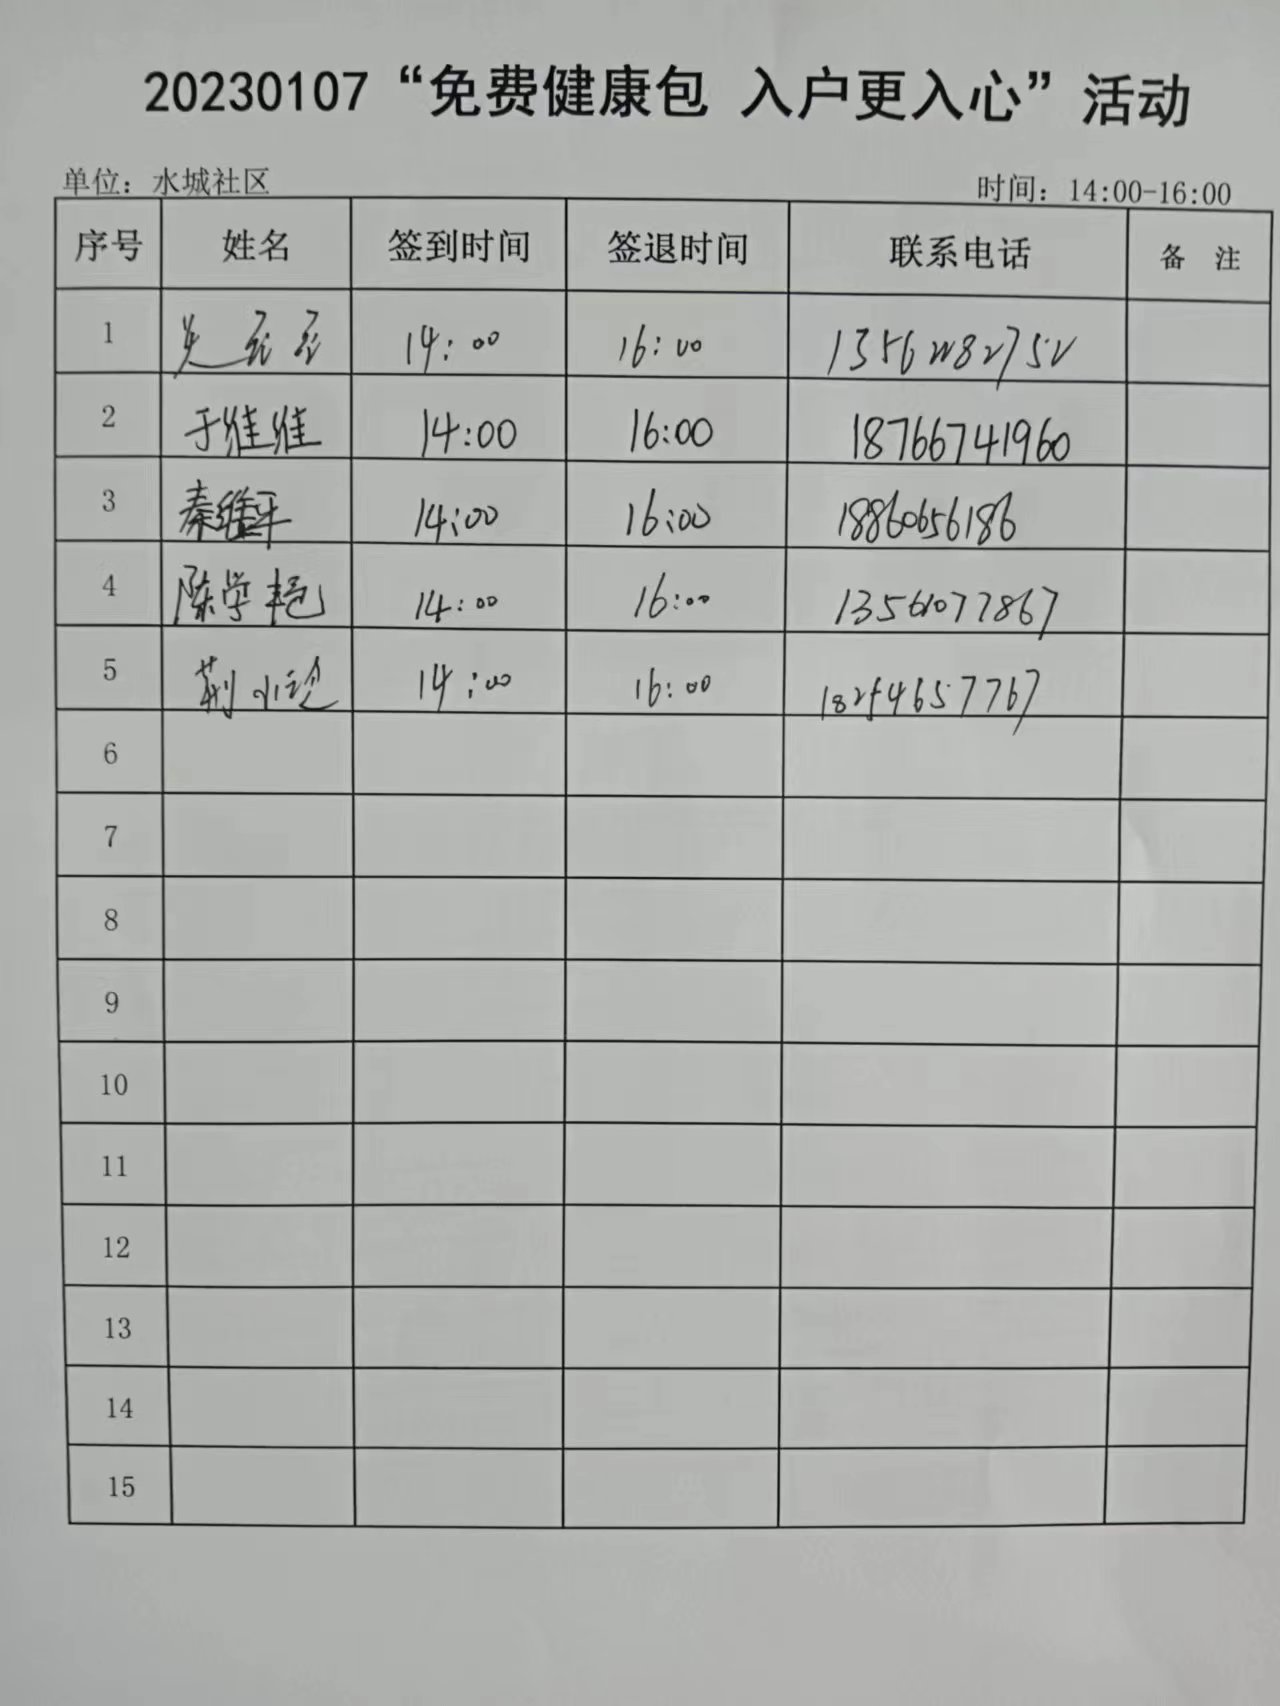 20230107“免费健康包 入户更入心”活动
单位：水城社区 时间：14:00-16:00
序号 姓名 签到时间 签退时间 联系电话 备 注
1 14:00 16:00
2 于维维 14:00 16:00 18766741960
3 秦继平 14:00 16:00 18860656186
4 陈学艳 14:00 16:00 13561077867
5 荆小 14:00 16:00
6
7
8
9
10
11
12
13
14
15